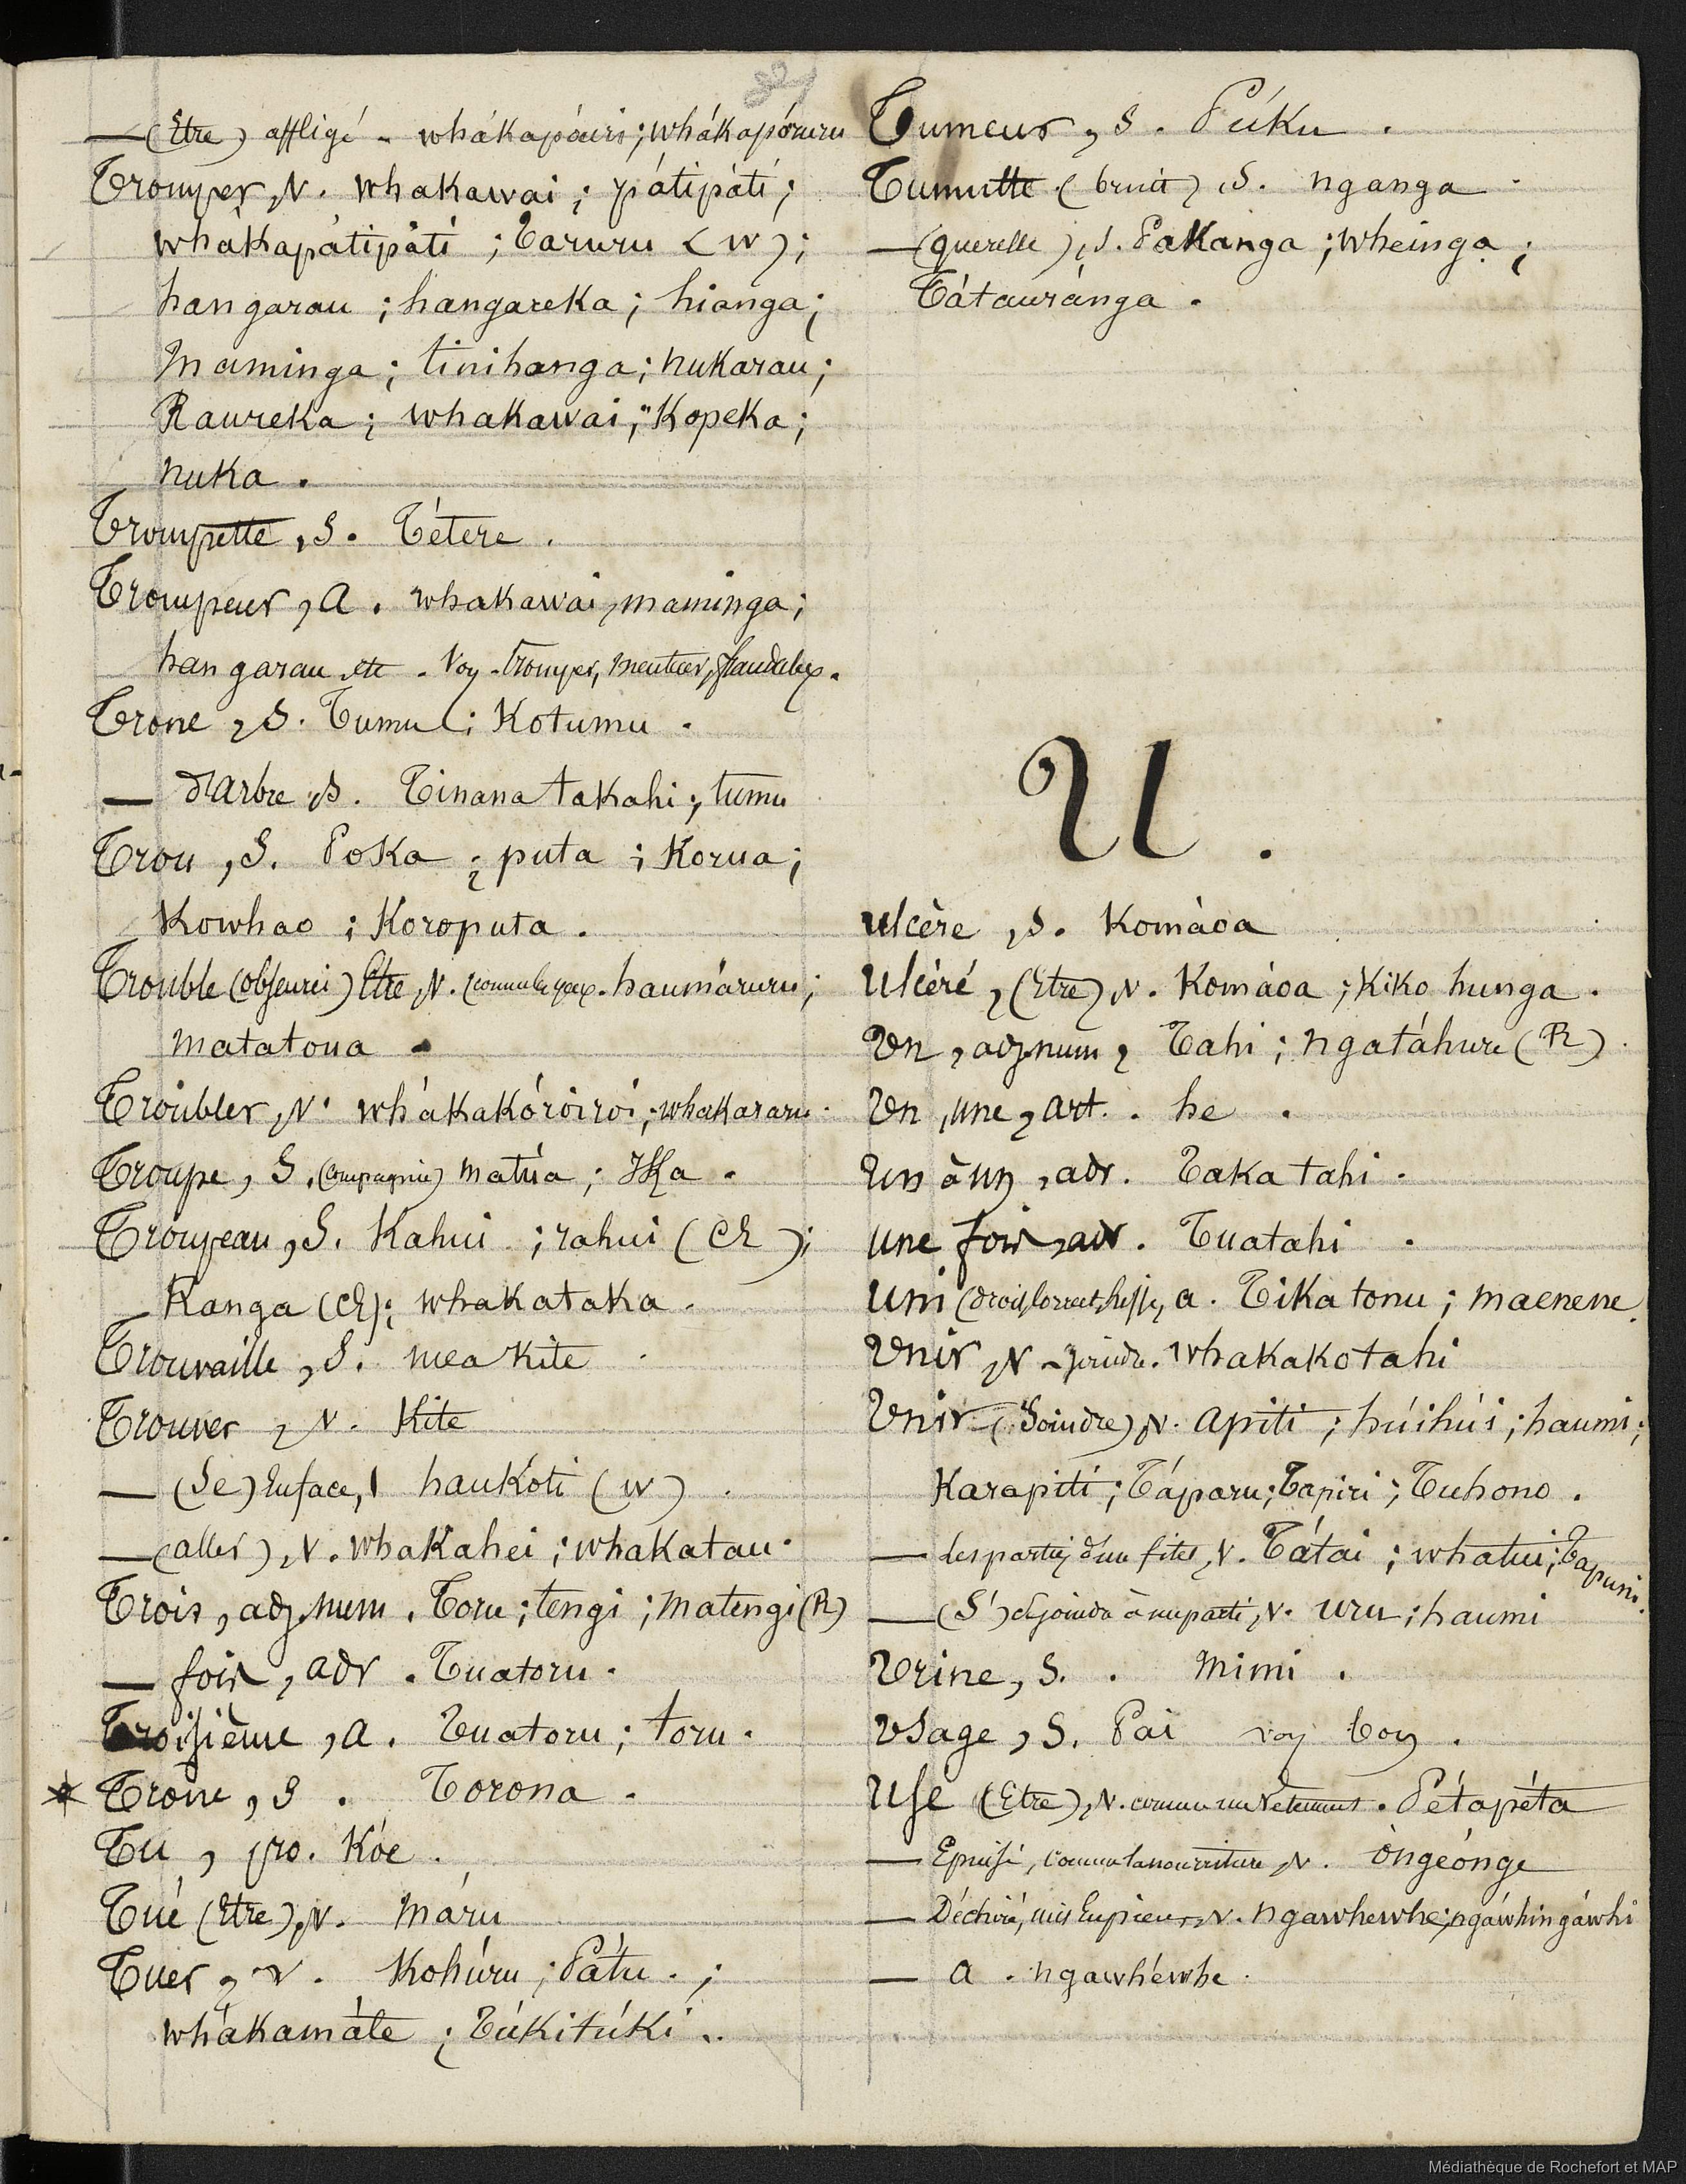 — (Etre) affligé - whákapóuri; whákapóruru
Tromper, v. whakawai; pátipátí;
whákapátipátí; Taruru (w);
hangarau; hangareka; hianga;
maminga; tinihanga; nukarau;
Raureka; whakawai; Kopeka;
nuka.
Trompette, S. Tétere.
Trompeur, a. whakawai, maminga;
hangarau etc. Voy. tromper, menteur, frauduleux.
Trone, S. Tumu; Kotumu.
— d'arbre, S. Tinana takahi; tumu
Trou, S. Poka; puta; Korua;
Kowhao; Koroputa.
Trouble (obscurci) Etre, v. (comme les yeux. haumáruru;
matatoua.
Troubler, v. whákakóroiroi; whakararu.
Troupe, S. (Compagnie) matúa; Ika.
Troupeau, S. Kahui; rahui (Ch);
Ranga (Ch); whakataka.
Trouvaille, S. mea kite
Trouver, v. Kite
— (Se) En face, haukoti (w).
— (aller), v. whakahei; whakatau.
Trois, adj. num. Toru; tengi; matengi (R)
— fois, adv. Tuatoru.
Troisième, a. Tuatoru; toru.
Trone, S. Torona.
Tu, pro. Kóe.
Tué (Etre), v. Máru
Tuer, v. Kohúru; Pátu.;
whákamáte; Túkitúki..
Tumeur, S. Púku.
Tumulte (bruit), S. nganga.
— (querelle), S. Pakanga; wheinga;
Tátauránga.
U.
Ulcère, S. Komáoa
Ulcéré, (Etre), v. Komáoa; Kiko hunga.
Un, adj num, Tahi; ngatáhure (R).
Un, une, art. he.
Un à un, adv. Taka tahi.
une fois, adv. Tuatahi.
Uni (droit, correct, lisse, a. Tika tonu; maenene.
Unir, v - joindre. whakakotahi
Unir (Joindre), v. apiti; húihúi; haumi;
Karapiti; Táparu; Tapiri; Tuhono.
— les parties d'un filet, v. Tátai; whatui; Tapuni.
— (S') et joindre à un parti, v. uru; haumi
Urine, S. mimi.
Usage, S. Pai voy Bon.
Usé (Etre), v. comme un vetement. Pétapéta
— Epuisé, comme la nourriture, v. òngeónge
— Déchiré, mis En pieces, v. ngawhewhe; ngáwhingáwhi
— a. ngawhéwhe.
Médiathèque de Rochefort et MAP